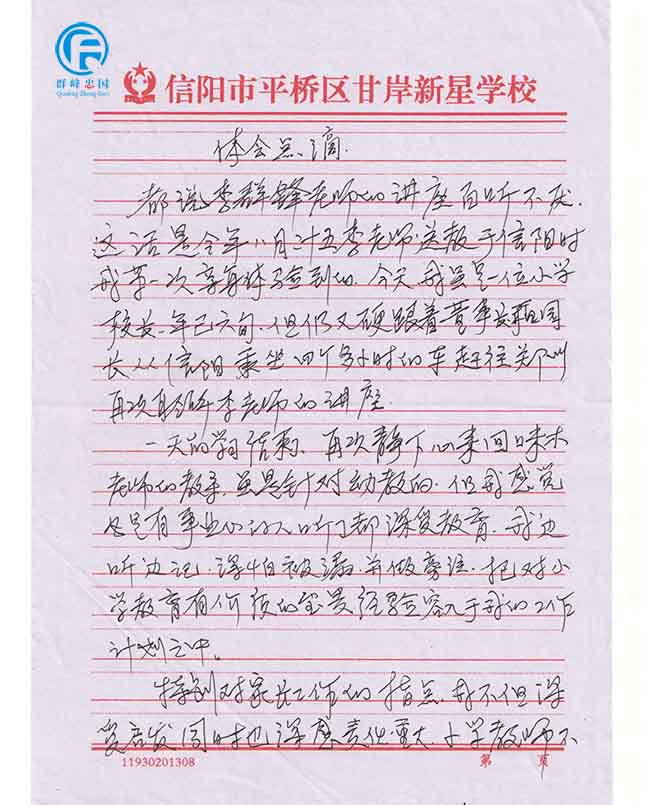 群峰忠国
Qunfeng Zhong Guo
信阳市平桥区甘岸新星学校
体会点滴.
都说李群锋老师的讲座百听不厌.
这话是今年八月二十五李老师 于信阳时
我第一次亲身体验到的. 今天我虽是一位小学
校长. 年已六旬. 但仍又硬跟着董事长 园
长从信阳乘坐四个多小时的车赶往郑州
再次聆听李老师的讲座.
一天的学习结束、再次静下心来回味李
老师的教导. 虽是针对幼教的. 但我感觉
只是有事业心的人听了都深受教育. 我边
听边记. 深怕被漏. 并做旁注. 把对小
学教育有价值的宝贵经验容入于我的工作
计划之中。
特别对家长工作的指点. 我不但深
受启发同时也深感责任重大 小学教师不
11930201308
第 页